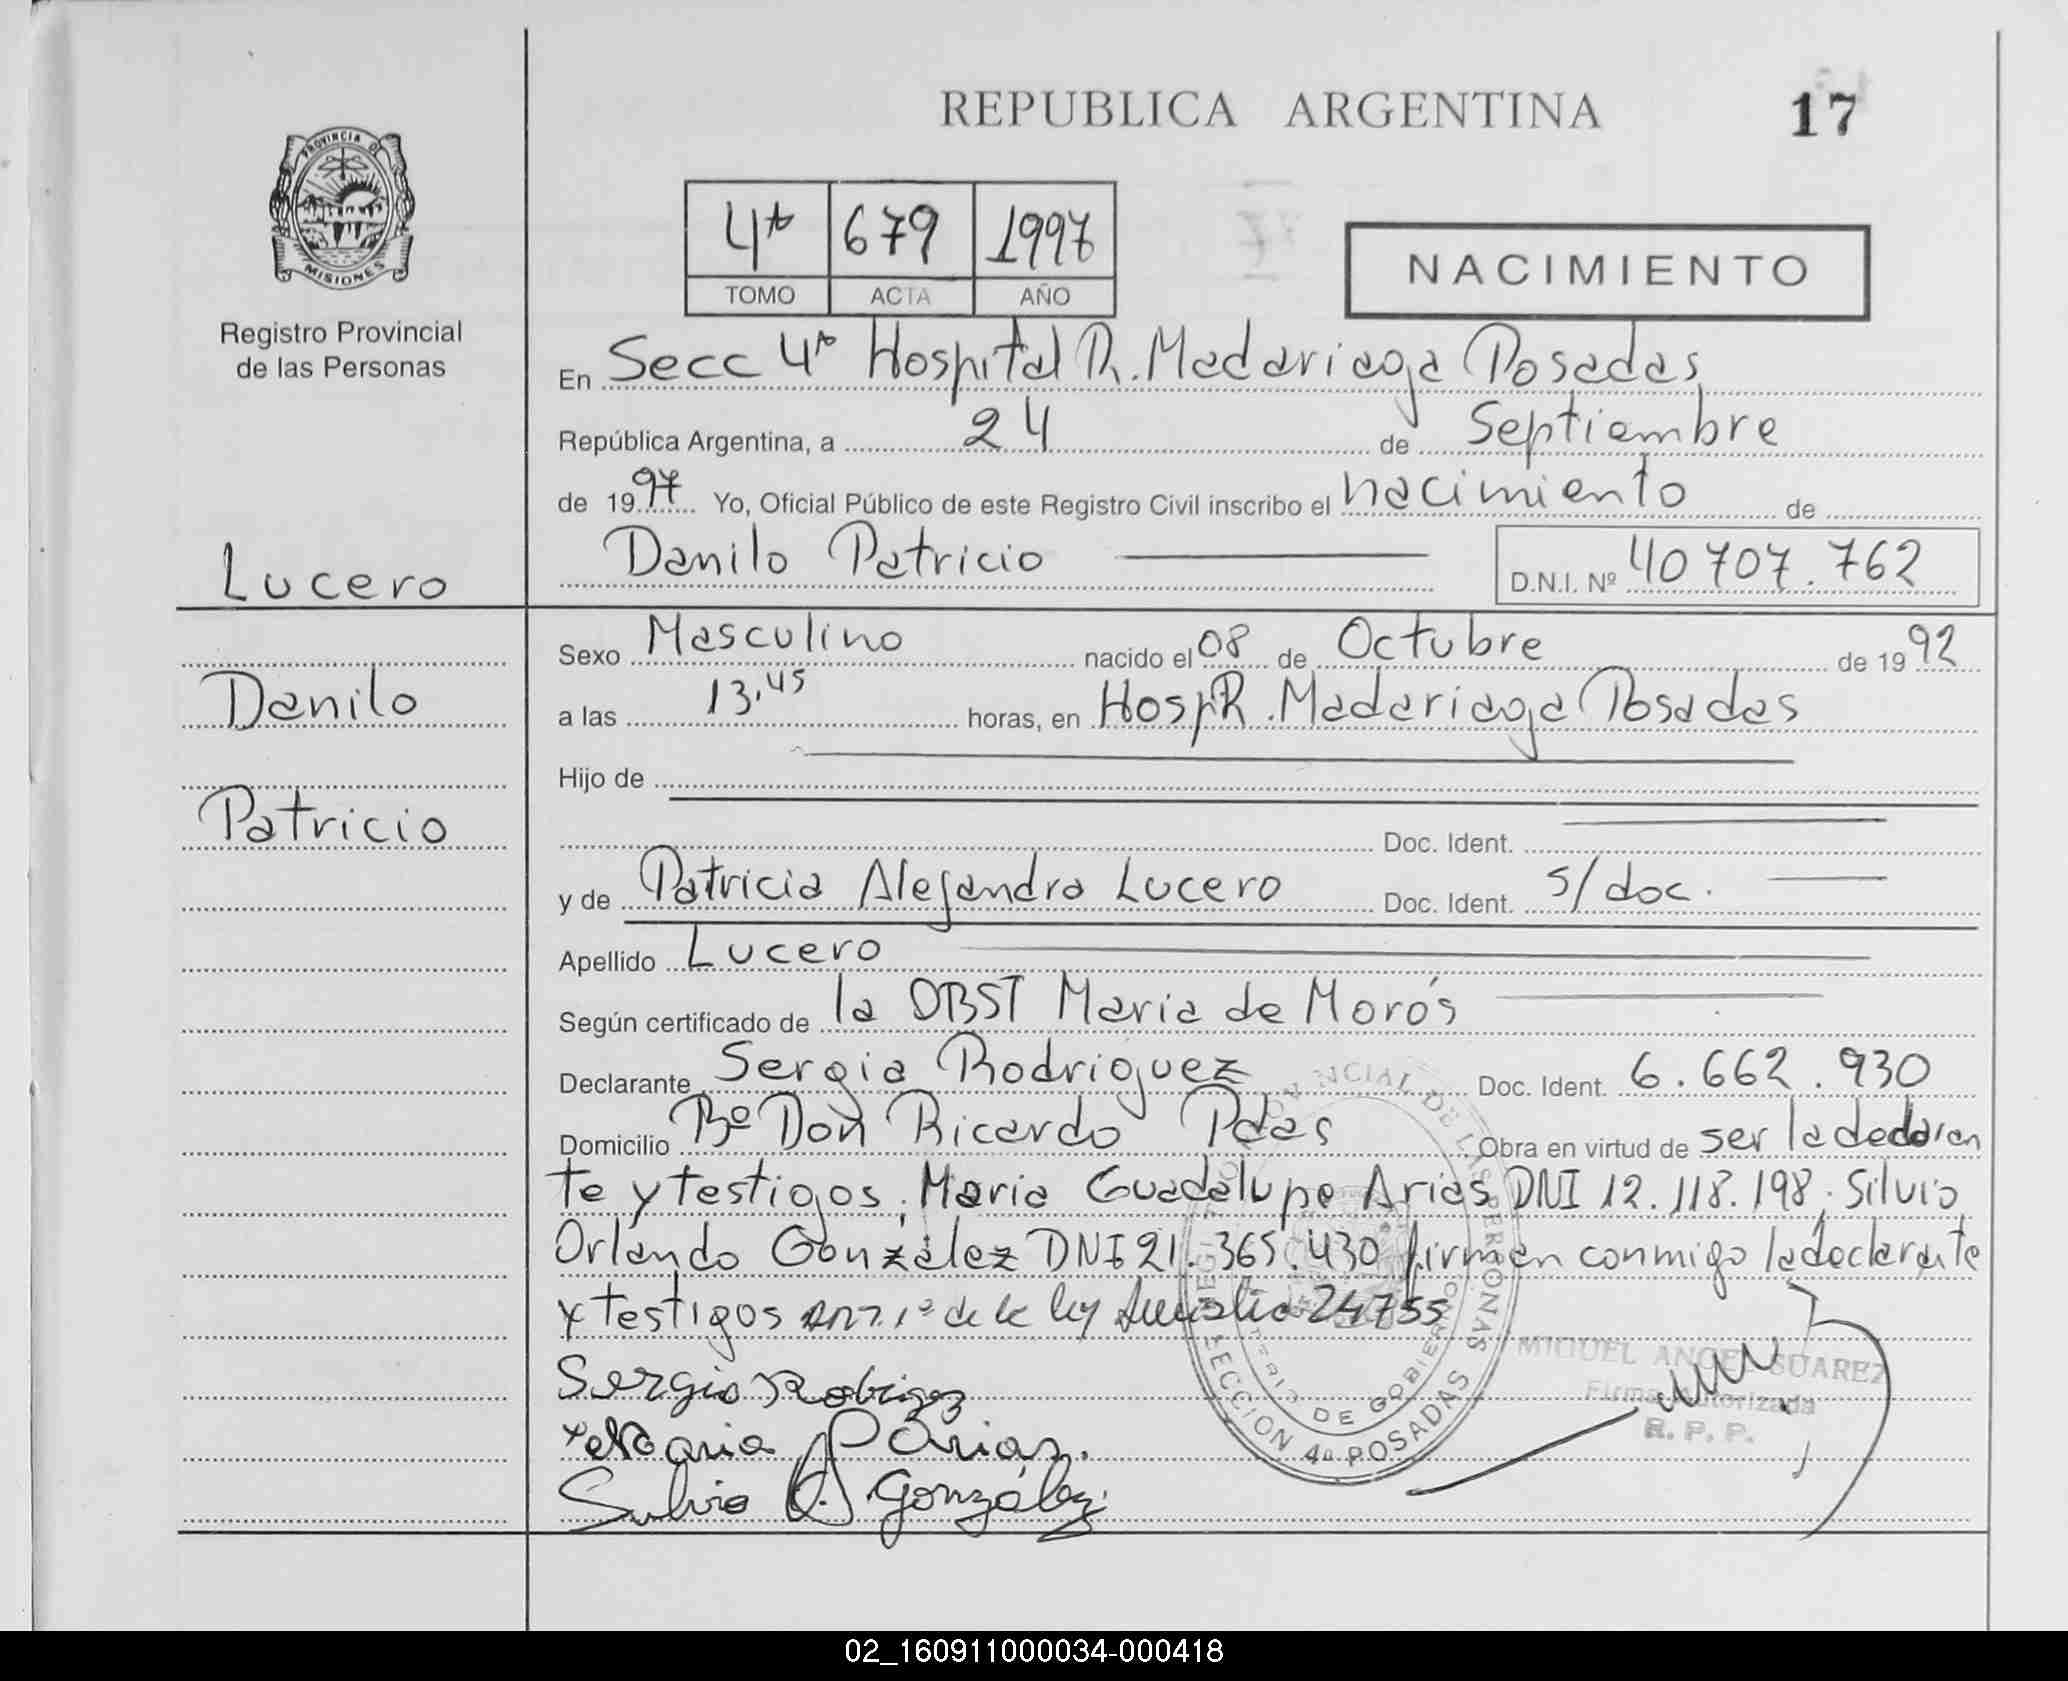 REPUBLICA ARGENTINA
17
PROVINCIA DE
MISIONES
Registro Provincial
de las Personas
4ta 679 1997
TOMO ACTA AÑO
NACIMIENTO
En Secc 4ta Hospital R. Madariaga Posadas
República Argentina, a 24 de Septiembre
de 1997 Yo, Oficial Público de este Registro Civil inscribo el nacimiento de
Danilo Patricio
D.N.I. Nº 40 707.762
Lucero
Danilo
Patricio
Sexo Masculino nacido el 08 de Octubre de 1992
a las 13,45 horas, en Hosp R. Madariaga Posadas
Hijo de
Doc. Ident.
y de Patricia Alejandra Lucero Doc. Ident. s/doc.
Apellido Lucero
Según certificado de la OBST Maria de Morós
Declarante Sergia Rodriguez Doc. Ident. 6.662.930
Domicilio Bº Don Ricardo Pdas Obra en virtud de ser la declaran
te y testigos, Maria Guadalupe Arias DNI 12.118.198, Silvio
Orlando González DNI 21.365.430 firman conmigo la declarante
y testigos 1º de la ley 24755
SECCION 4a POSADAS
DE GOBIERNO
MIGUEL ANGEL SUAREZ
Firma Autorizada
R. P. P.
Maria Arias.
Silvio O. González
02_160911000034-000418